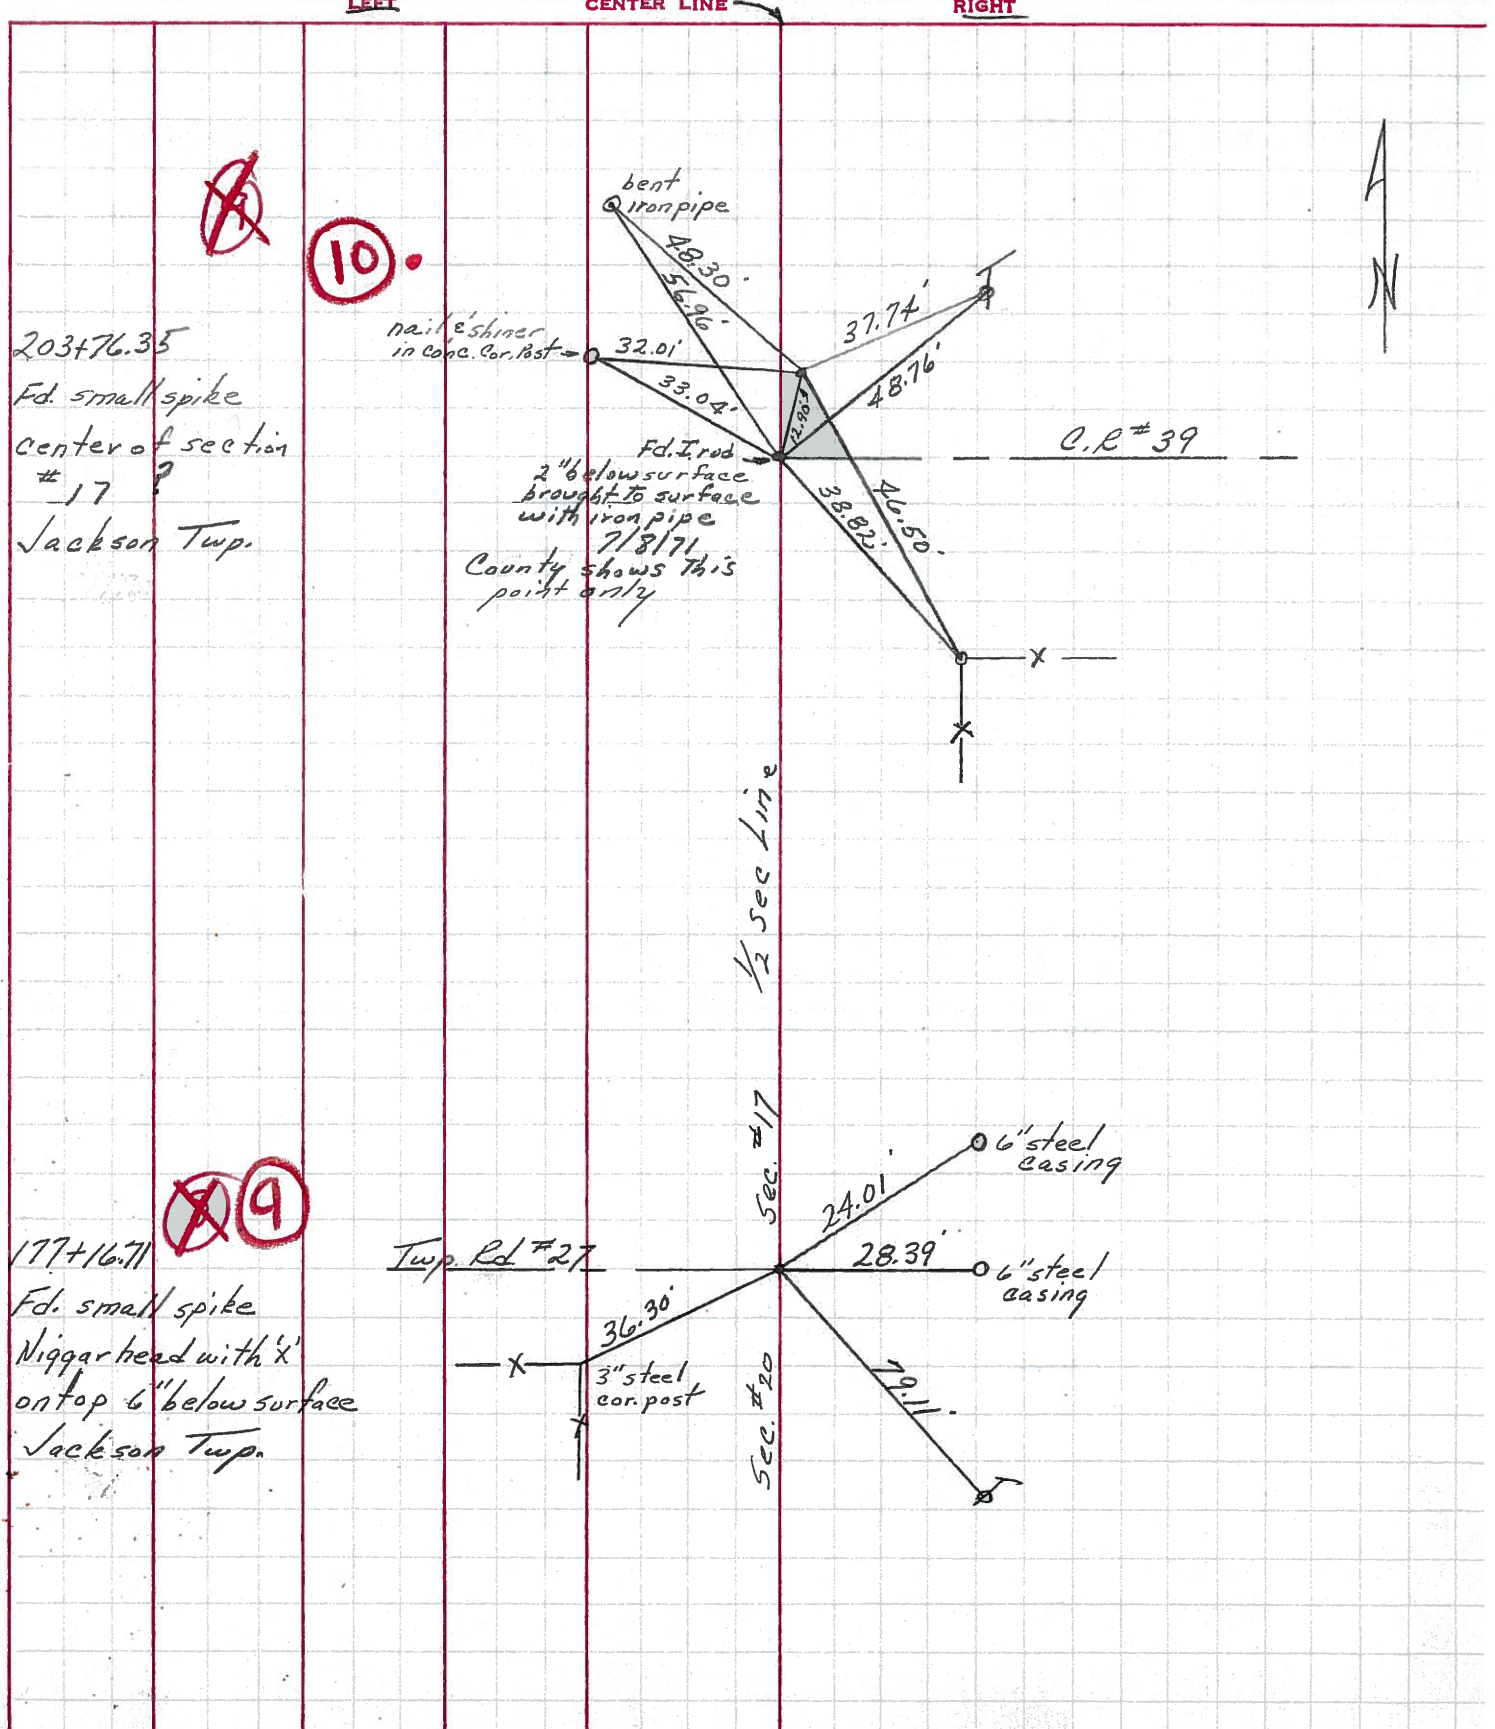 LEFT
CENTER LINE
RIGHT
10
203+76.35
Fd. small spike
center of section
#17 ?
Jackson Twp.
bent
iron pipe
48.30'
56.96'
nail & shiner
in conc. Cor. Post
32.01'
33.04'
37.74'
48.76'
12.90'
Fd. I. rod
2" below surface
brought to surface
with iron pipe
7/8/71
County shows This
point only
C.R #39
38.82'
46.50'
N
X
X
1/2 Sec Line
Sec. #17
9
177+16.71
Fd. small spike
Niggarhead with 'X'
on top 6" below surface
Jackson Twp.
Twp. Rd #27
24.01'
6" steel
casing
28.39'
6" steel
casing
36.30'
X
3" steel
cor. post
X
Sec. #20
79.11'